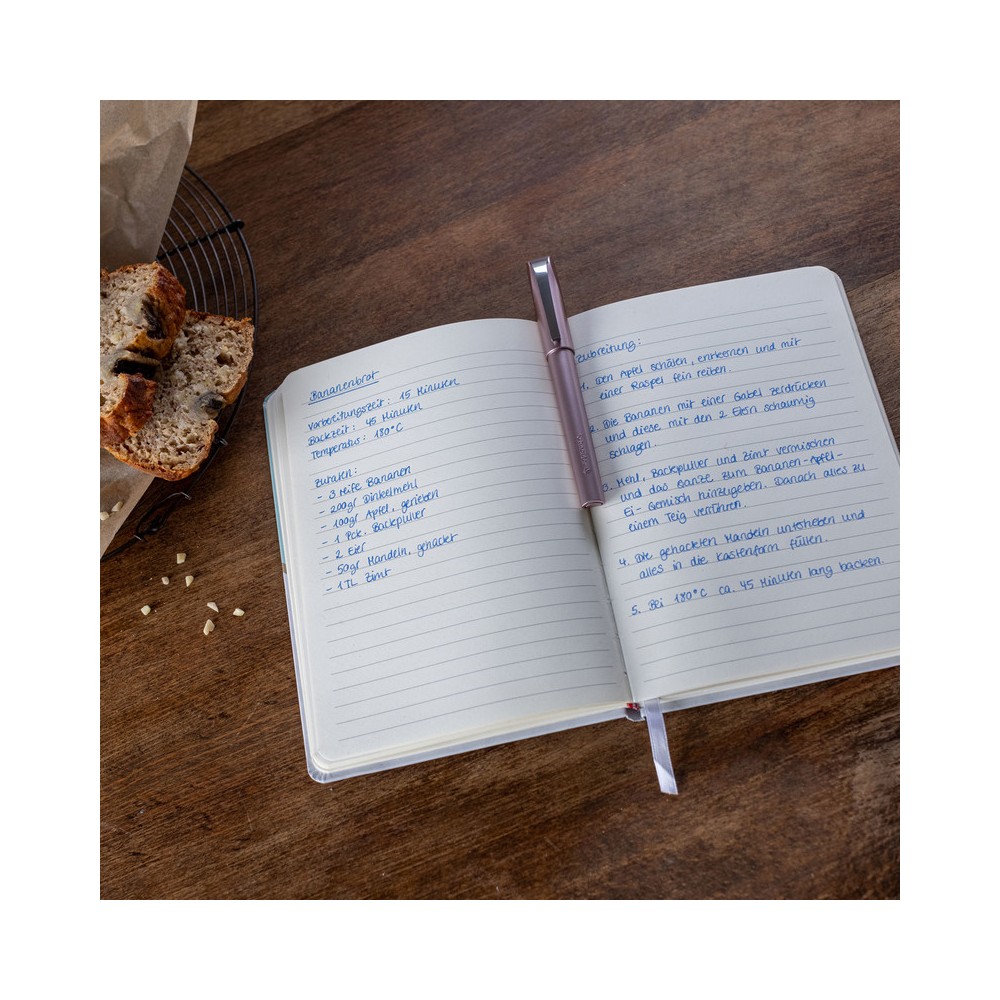 Bananenbrot
Vorbereitungszeit: 15 Minuten
Backzeit: 45 Minuten
Temperatur: 180°C
Zutaten:
- 3 reife Bananen
- 200gr Dinkelmehl
- 100gr Apfel, gerieben
- 1 Pck. Backpulver
- 2 Eier
- 50gr Mandeln, gehackt
- 1 TL Zimt
Zubreitung:
1. Den Apfel schälen, entkernen und mit
einer Raspel fein reiben.
2. Die Bananen mit einer Gabel zerdrücken
und diese mit den 2 Eiern schaumig
schlagen.
3. Mehl, Backpulver und Zimt vermischen
und das Ganze zum Bananen-Apfel-
Ei-Gemisch hinzugeben. Danach alles zu
einem Teig verrühren.
4. Die gehackten Mandeln unterheben und
alles in die Kastenform füllen.
5. Bei 180°C ca. 45 Minuten lang backen.